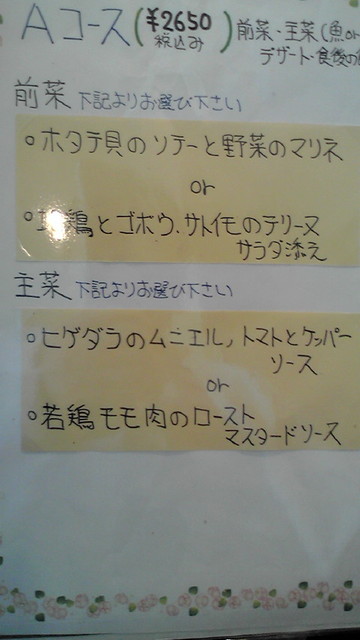 Aコース(¥2650 税込み) 前菜・主菜(魚or
デザート・食後の
前菜 下記よりお選び下さい
○ホタテ貝のソテーと野菜のマリネ
or
鶏とゴボウ、サトイモのテリーヌ
サラダ添え
主菜 下記よりお選び下さい
○ヒゲダラのムニエル、トマトとケッパー
ソース
or
○若鶏モモ肉のロースト
マスタードソース